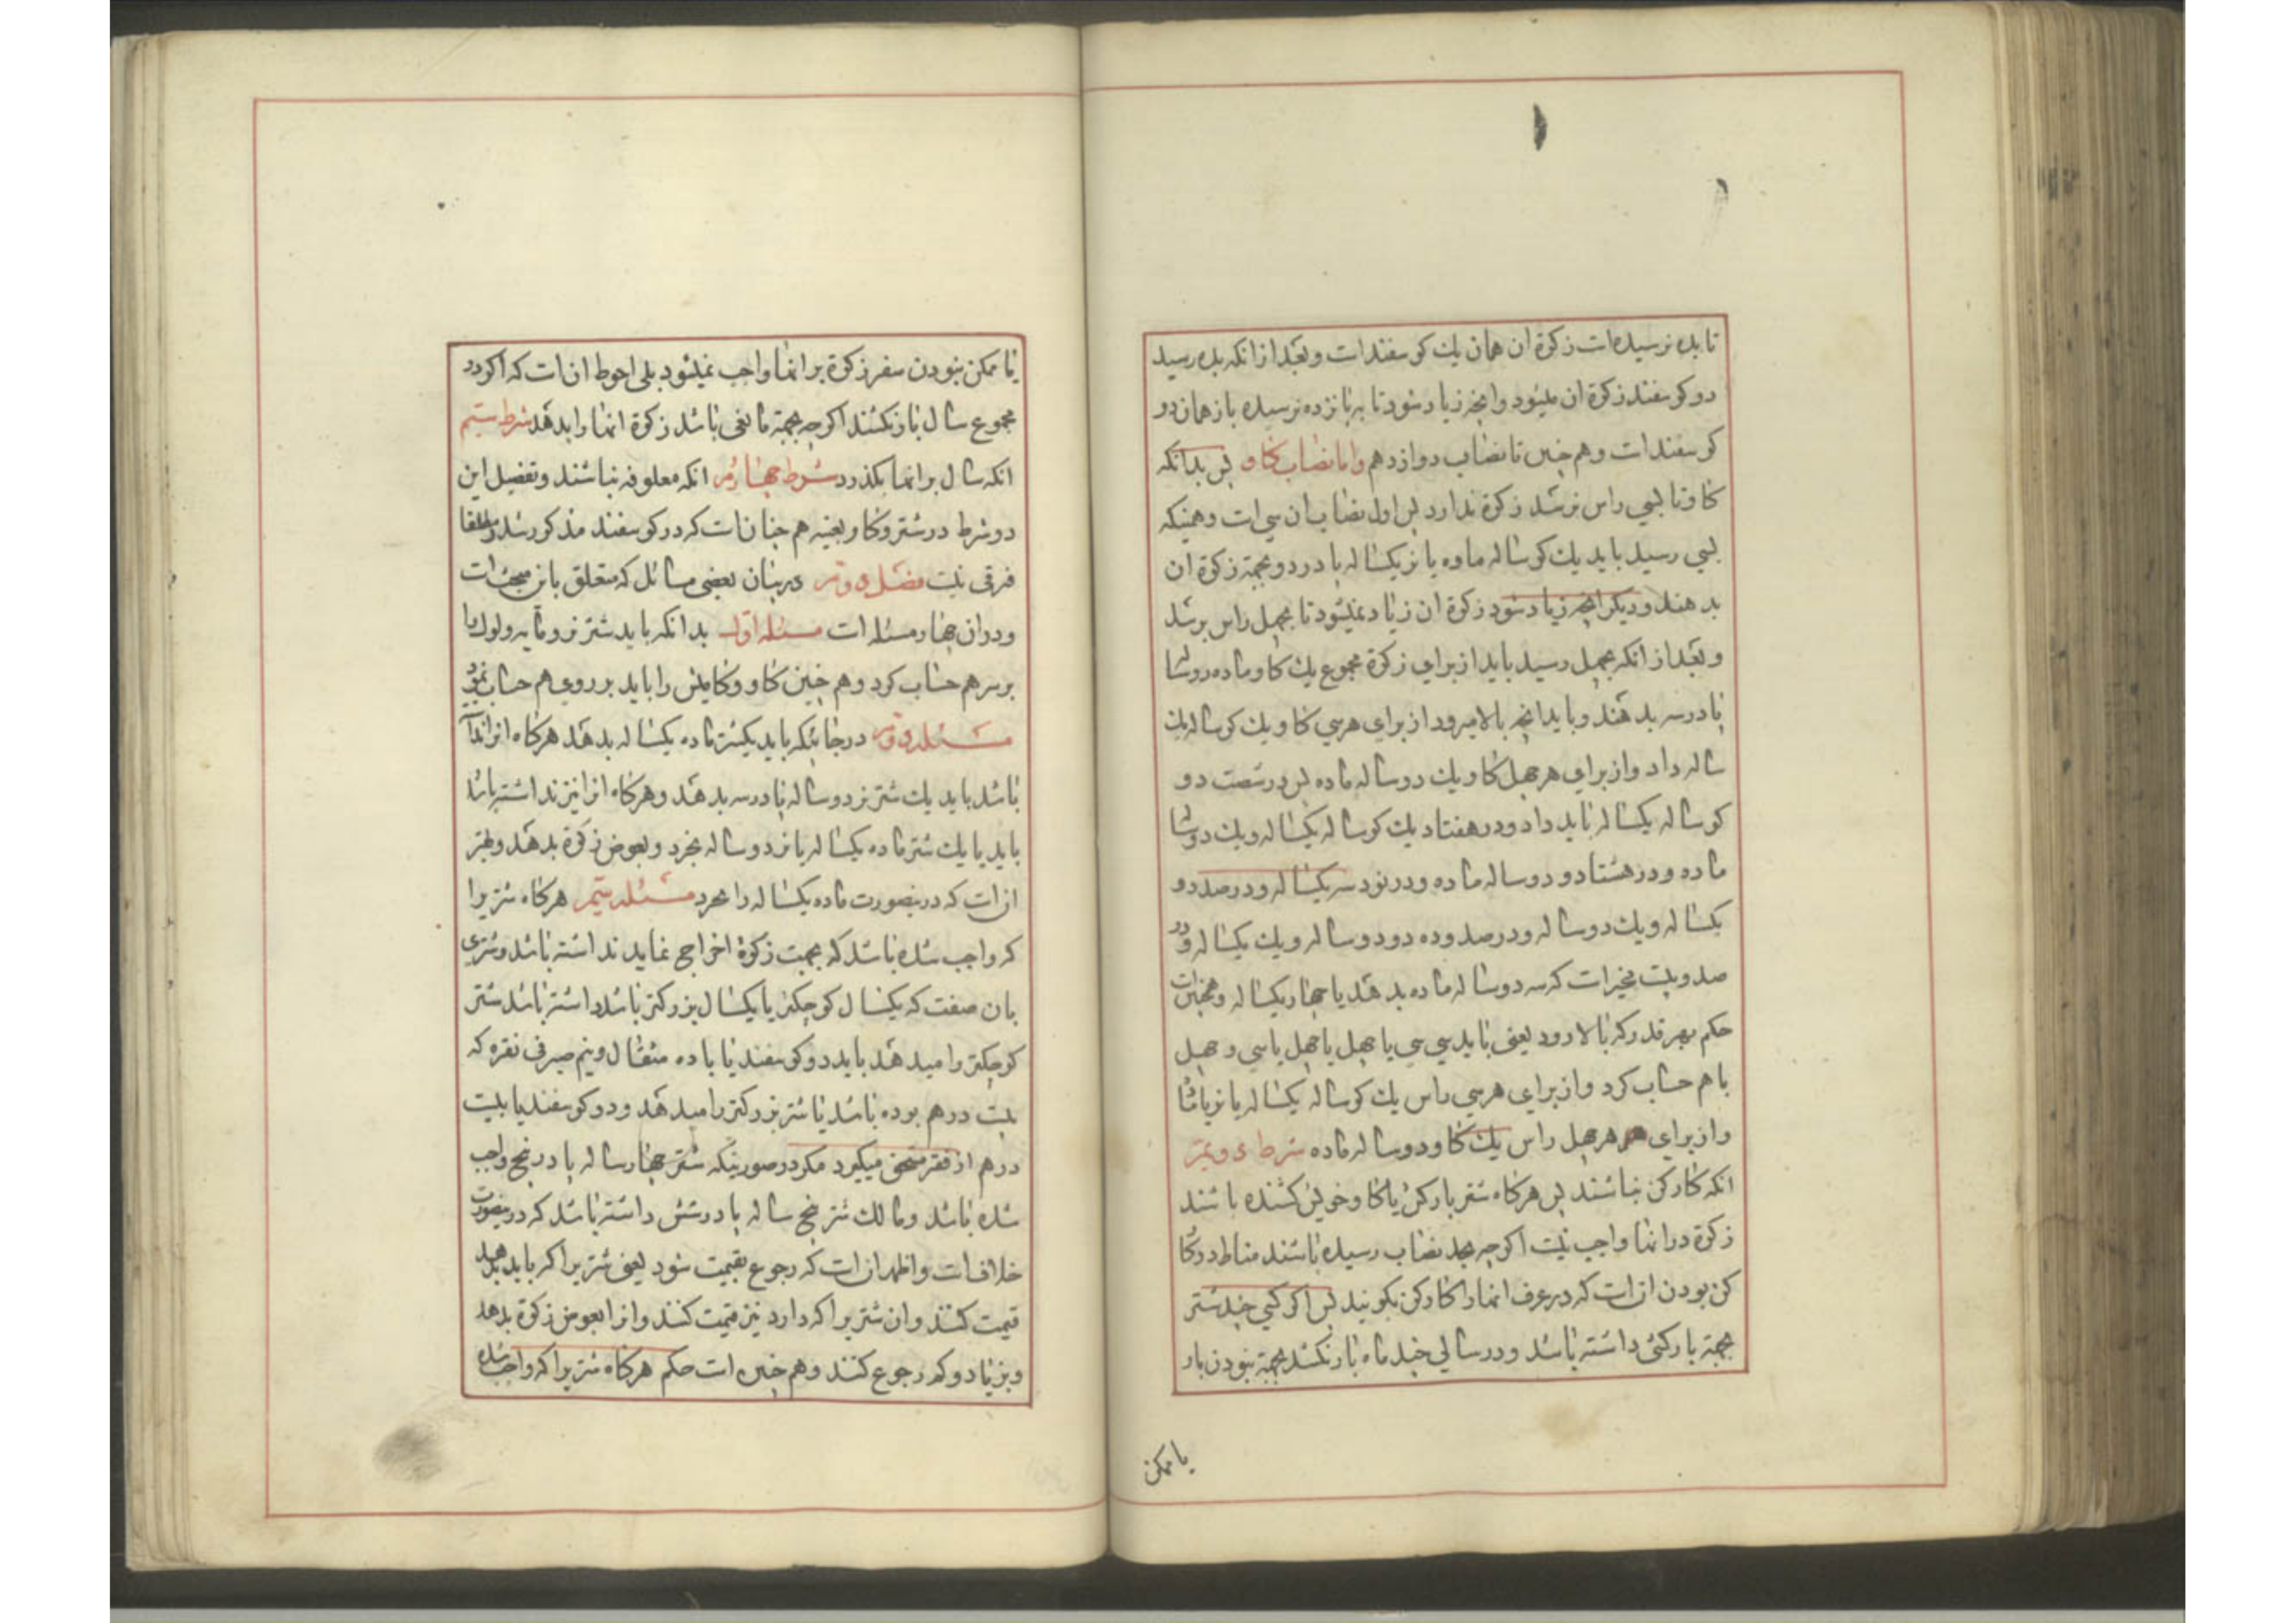 تا بده نرسیده است زکوة ان همان یك کوسفند است و بعد از انکه بده رسید
دو کوسفند زکوة ان میشود وانچه زیاد شود تا به پانزده نرسیده باز همان دو
کوسفند است و هم چنین تا نصاب دوازدهم واما نصاب کاو پس بدانکه
کاو تا بسی راس نرسد زکوة ندارد پس اول نصاب ان سی است و همینکه
بسی رسید باید یك کوساله ماده یا نر یکساله پا در دو بجهة زکوة ان
بدهند و دیکر انچه زیاد شود زکوة ان زیاد نمیشود تا بچهل راس برسد
و بعد از انکه بچهل رسید باید از برای زکوة مجموع یك کاو ماده دو ساله
پا در سه بدهند و باید انچه بالا میرود از برای هر سی کاو یك کوساله یك
ساله داد و از برای هر چهل کاو یك دو ساله ماده پس در شصت دو
کوساله یکساله باید داد و در هفتاد یك کوساله یکساله و یك دو ساله
ماده و در هشتاد دو دو ساله ماده و در نود سه یکساله و در صد دو
یکساله و یك دو ساله و در صد و ده دو دو ساله و یك یکساله و در
صد و بیست مخیر است که سه دو ساله ماده بدهد یا چهار یکساله و همچنین است
حکم بهر قدر که بالا رود یعنی باید سی سی یا چهل یا چهل یا سی و چهل
با هم حساب کرد و از برای هر سی راس یك کوساله یکساله یا نر یا ماده
و از برای هر چهل راس یك کاو دو ساله ماده شرط دویم
انکه کارکن نباشند پس هرکاه شتر بارکش یا کاو خویش کشنده باشند
زکوة در انها واجب نیست اکرچه بحد نصاب رسیده باشند مناط در کار
کن بودن ان است که در عرف انها را کارکن بکویند پس اکر کسی چند شتر
بجهة بارکشی داشته باشد و در سالی چند ماه بار نکشد بجهة نبودن بار
یا ممکن
یا ممکن نبودن سفر زکوة بر انها واجب نمیشود بلی احوط ان است که اکر در
مجموع سال بار نکشند اکرچه بجهة مانعی باشد زکوة انها را بدهد شرط سیم
انکه سال بر انها بکذرد شرط چهارم انکه معلوفه نباشند و تفصیل این
دو شرط در شتر و کاو بعینه هم چنان است که در کوسفند مذکور شد و مطلقا
فرقی نیست فصل دوم در بیان بعضی مسائل که متعلق باین مبحث است
و دران چهار مسئله است مسئله اول بدانکه باید شتر نر و مایه و لوك را
بر سر هم حساب کرد و هم چنین کاو و کامیش را باید بر روی هم حساب نمود
مسئله دوم در جائیکه باید یکشتر ماده یکساله بدهد هرکاه انرا نداشته
باشد باید یك شتر نر دو ساله پا در سه بدهد و هرکاه انرا نیز نداشته باشد
باید یا یك شتر ماده یکساله یا نر دو ساله بخرد و بعوض زکوة بدهد و بهتر
ان است که در نصورت ماده یکساله را بخرد مسئله سیم هرکاه شتر یرا
که واجب شده باشد که بجهت زکوة اخراج نماید نداشته باشد و شتری
بان صفت که یکسال کوچکتر یا یکسال بزرکتر باشد داشته باشد شتر
کوچکتر را میدهد باید دو کوسفند یا با ده مثقال و نیم صیرفی نقره که
بیست درهم بوده باشد یا شتر بزرکتر را میدهد و دو کوسفند یا بیست
درهم از فقیر مستحق میکیرد مکر در صورتیکه شتر چهار ساله پا در پنج واجب
شده باشد و مالك شتر پنج ساله پا در شش داشته باشد که در نصورت
خلاف است و اظهر ان است که رجوع بقیمت شود یعنی شتر یرا که باید بدهد
قیمت کنند و ان شتر یرا که دارد نیز قیمت کنند و انرا بعوض زکوة بدهد
و بزیاد و کم رجوع کنند و هم چنین است حکم هرکاه شتر یرا که واجب شده